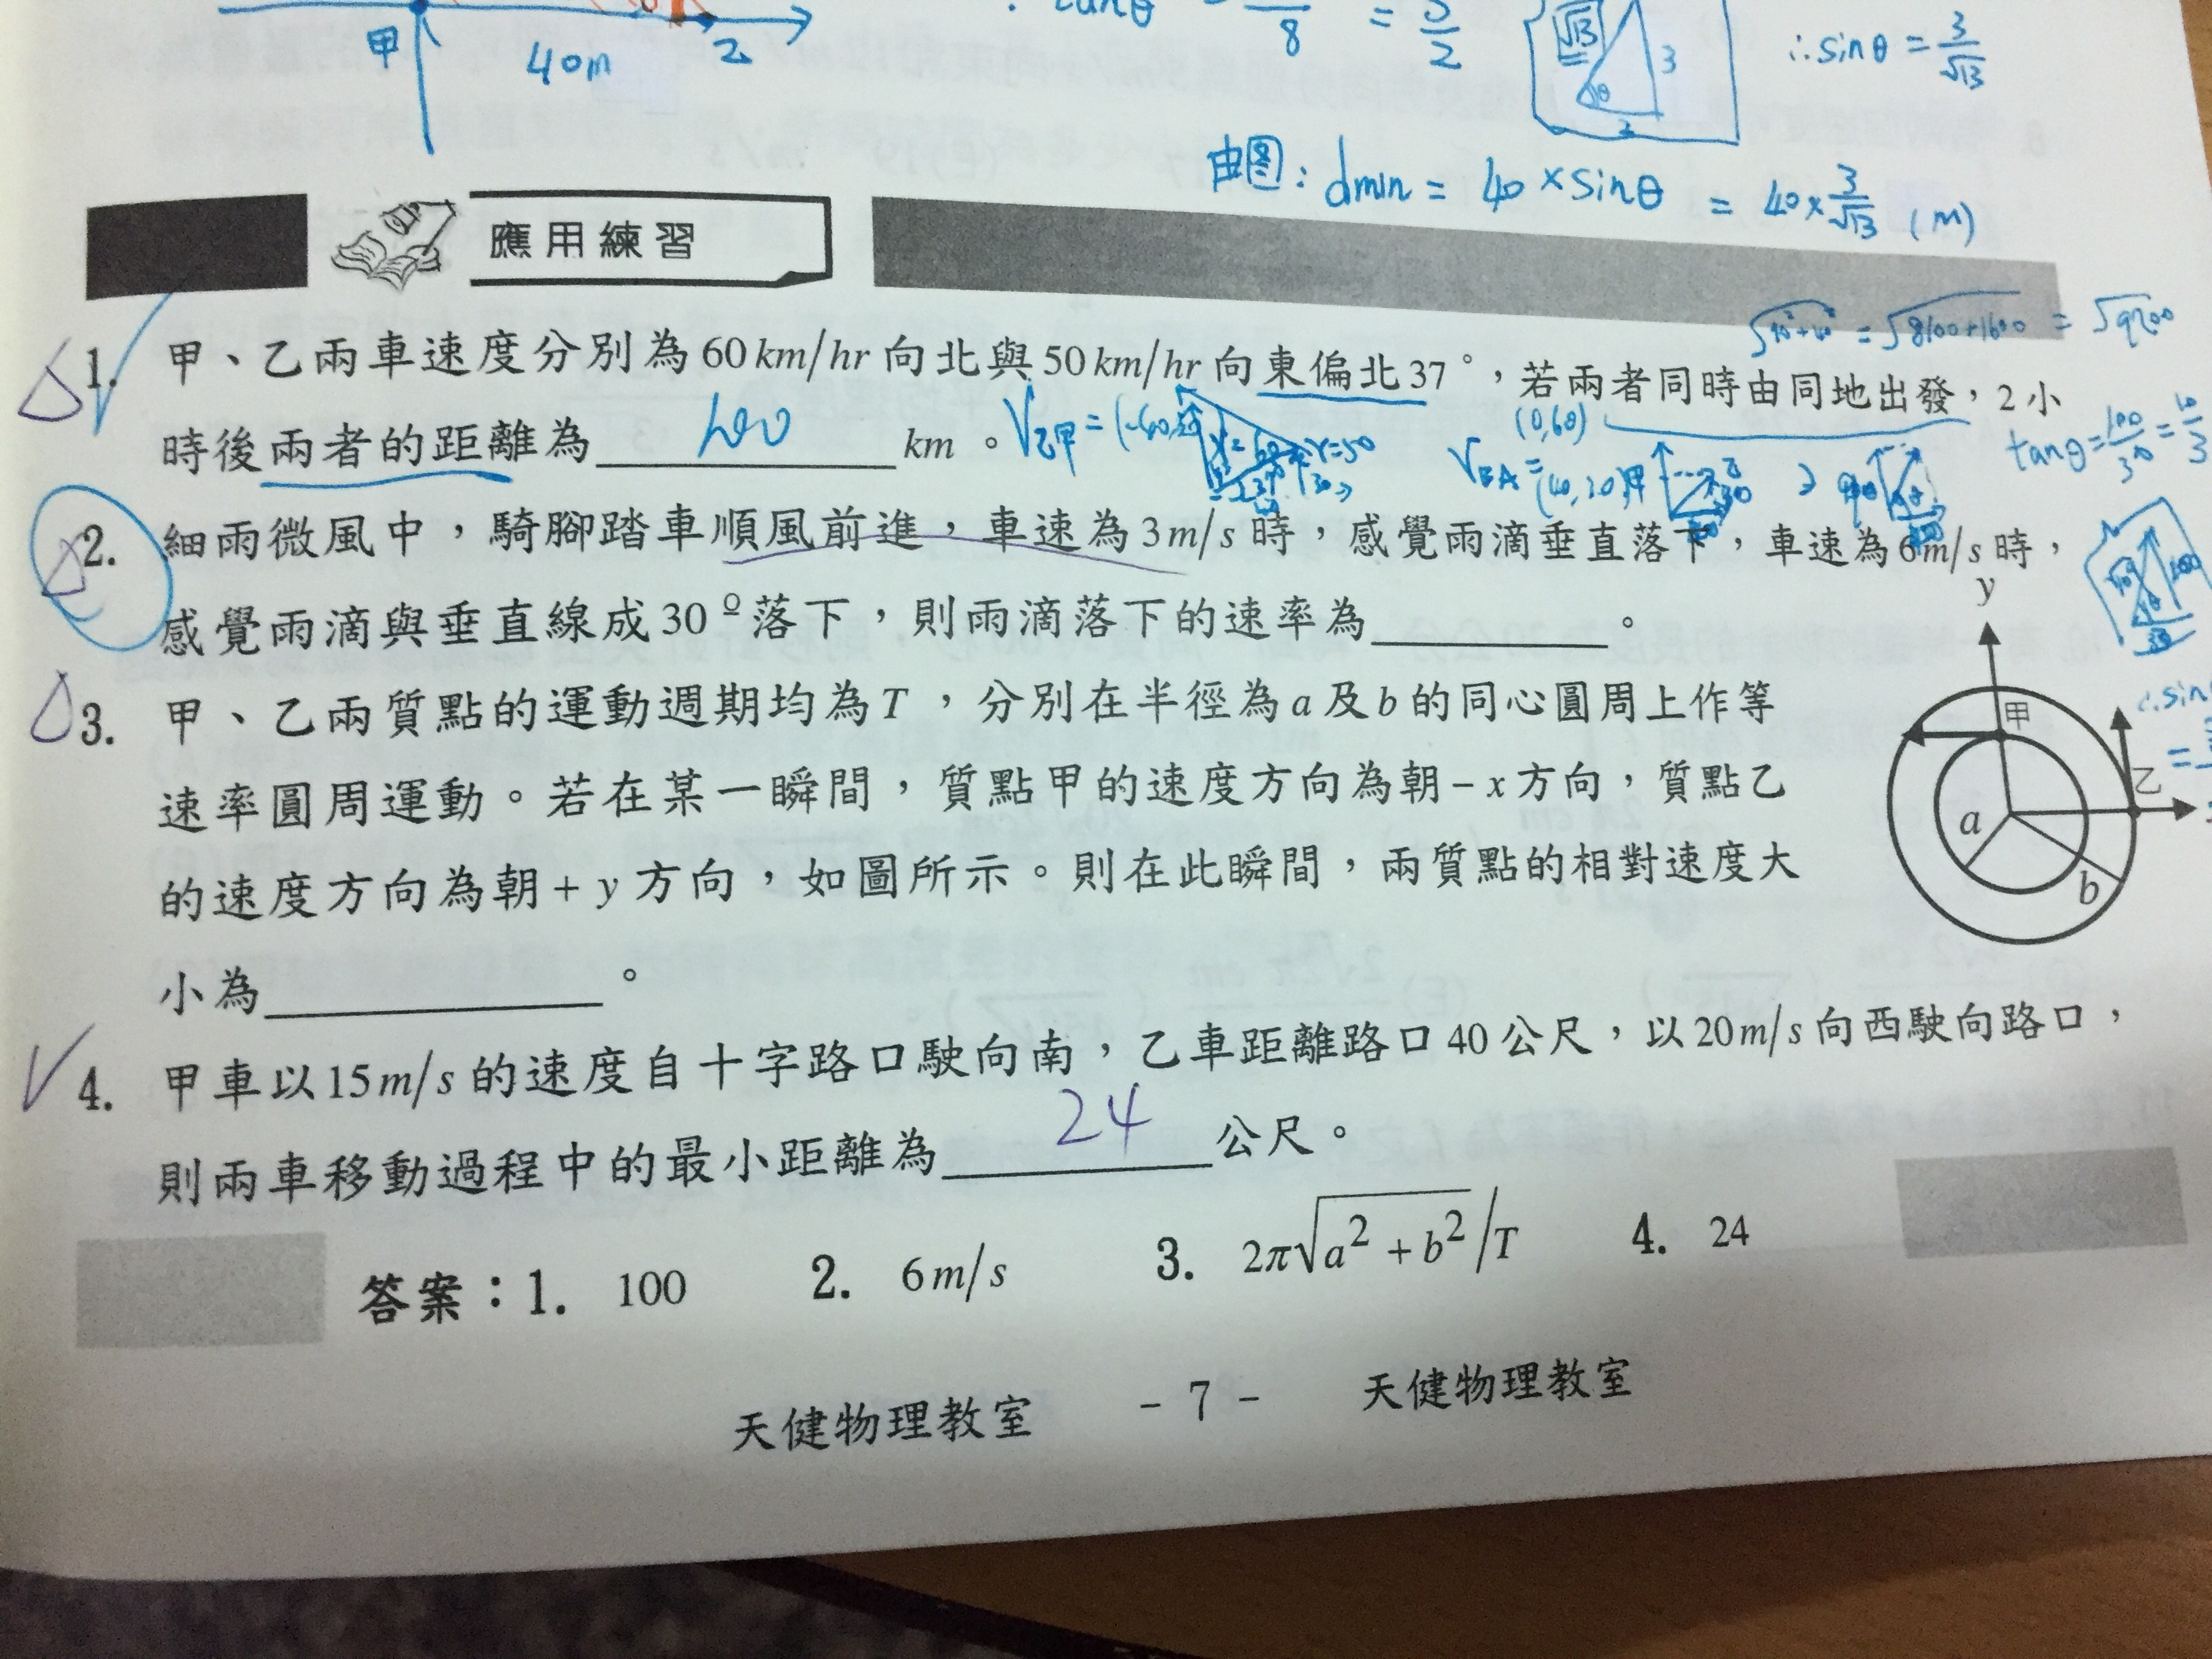 甲 40m 乙
8 = 3/2
√13 3 θ 2
∴sinθ = 3/√13
由图: dmin = 40×sinθ = 40×3/√13 (m)
應用練習
1. 甲、乙兩車速度分別為60km/hr向北與50km/hr向東偏北37°,若兩者同時由同地出發,2小
時後兩者的距離為 100 km。
2. 細雨微風中,騎腳踏車順風前進,車速為3m/s時,感覺雨滴垂直落下,車速為6m/s時,
感覺雨滴與垂直線成30º落下,則雨滴落下的速率為________。
3. 甲、乙兩質點的運動週期均為T,分別在半徑為a及b的同心圓周上作等
速率圓周運動。若在某一瞬間,質點甲的速度方向為朝-x方向,質點乙
的速度方向為朝+y方向,如圖所示。則在此瞬間,兩質點的相對速度大
小為________。
y
甲
乙
a
b
4. 甲車以15m/s的速度自十字路口駛向南,乙車距離路口40公尺,以20m/s向西駛向路口,
則兩車移動過程中的最小距離為 24 公尺。
答案:1. 100 2. 6m/s 3. 2π√a²+b²/T 4. 24
天健物理教室 -7- 天健物理教室